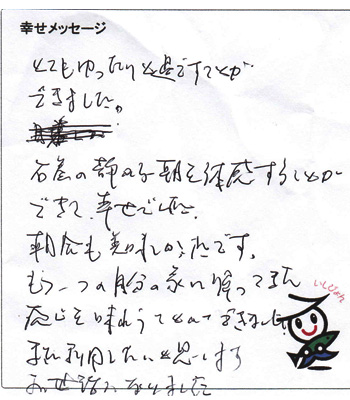 幸せメッセージ
とてもゆったりと過ごすことが
できました。
石倉の静かな朝を体感することが
できて、幸せでした。
朝食も美味しかったです。
もう一つの自分の家に帰ってきた
感じを味わうことができました。
また利用したいと思います
お世話になりました